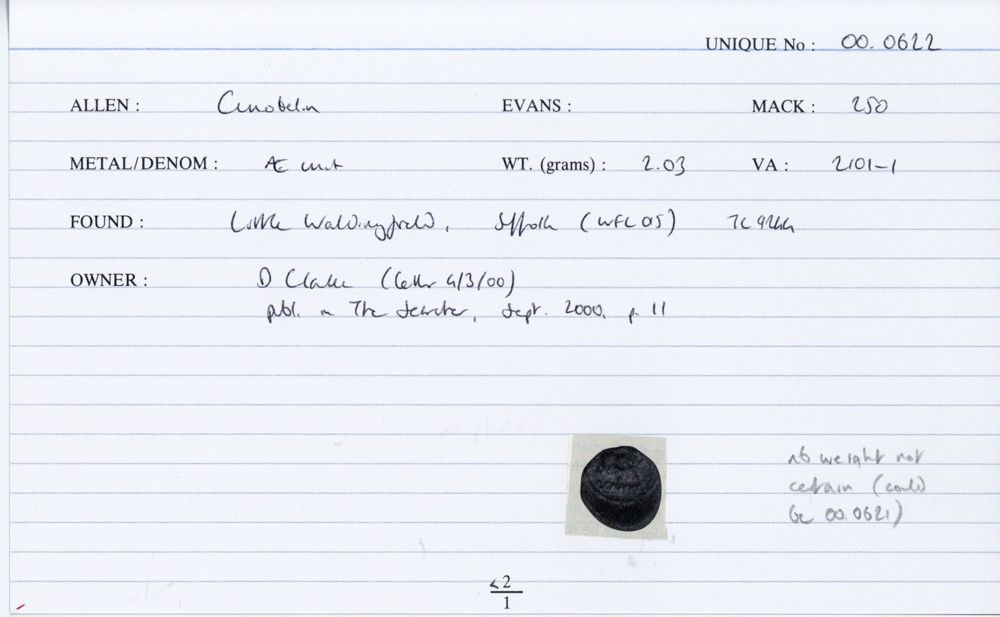 UNIQUE No : 00.0622
ALLEN : Cunobelin EVANS : MACK : 250
METAL/DENOM : Æ unit WT. (grams) : 2.03 VA : 2101-1
FOUND : Little Waldingfield, Suffolk (WFL 05) TL 9244
OWNER : D Clarke (letter 4/3/00)
publ. in The Searcher, Sept. 2000, p. 11
nb weight not
certain (could
be 00.0621)
<2
1